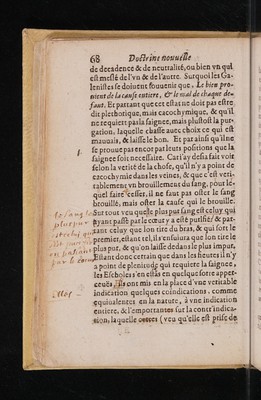 68 Doctrine nouuelle
de decadence & de neutralité, ou bien vn qui
est meslé de l'vn & de l'autre. Surquoi les Ga-
lenistes se doiuent souuenir que, Le bien pro-
uient de la cause entiere, & le mal de chaque de-
faut. Et partant que cet estat ne doit pas estre
dit plethorique, mais cacochymique, & qu'il
ne requiert pas la saignee, mais plustost la pur-
gation, laquelle chasse auec choix ce qui est
mauuais, & laisse le bon. Et par ainsi qu'il ne
se prouue pas encor par leurs positions que la
saignee soit necessaire. Car i'ay desia fait voir
selon la verité de la chose, qu'il n'y a point de
cacochymie dans les veines, & que c'est veri-
tablement vn brouillement du sang, pour le-
quel faire cesser, il ne faut pas oster le sang
brouillé, mais oster la cause qui le brouille.
Sur tout veu que le plus pur sang est celuy qui
ayant passé par le cœur y a esté purifié & par-
tant celuy que lon tire du bras, & qui sort le
premier, estant tel, il s'ensuiura que lon tire le
plus pur, & qu'on laisse dedans le plus impur,
Estant donc certain que dans les
a point de plenitude qui requiere la saignee,
les Escholiers en
ceuës, ils ont mis en la place d'vne veritable
indication quelques coindications, comme
equiualentes en la nature, à vne indication
entiere, & l'importantes sur la contr'indica-
tion, laquelle (veu qu'elle est prise de
le sang
plus pur
est celuy qui